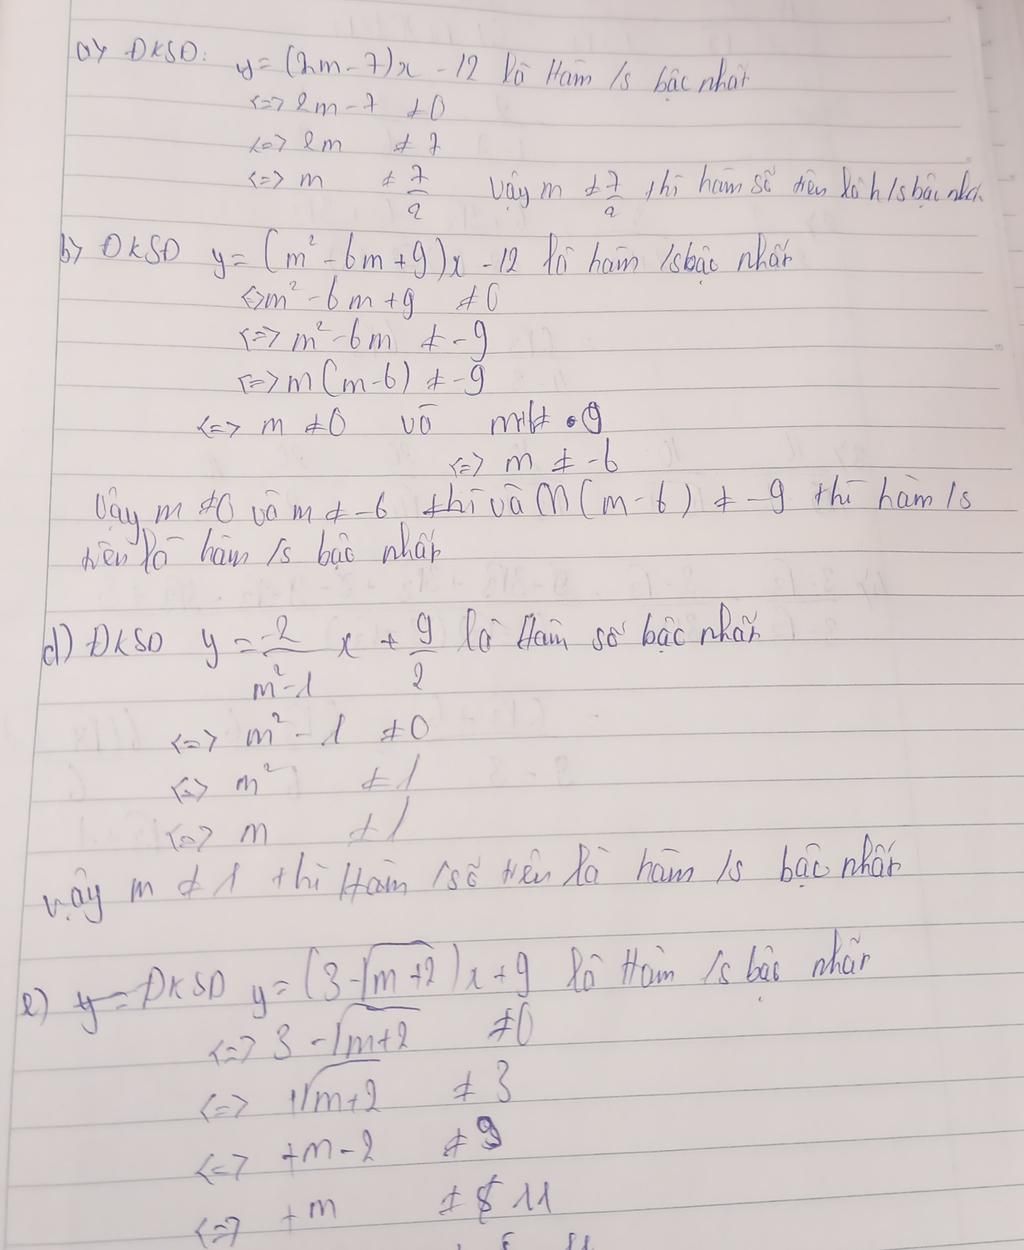 a) ĐKSD: y = (2m - 7)x - 12 là Hàm /s bậc nhất
<=> 2m - 7 ≠ 0
<=> 2m ≠ 7
<=> m ≠ 7/2 Vậy m ≠ 7/2 thì hàm số trên là h/s bậc nhất
b) ĐKSD y = (m² - 6m + 9)x - 12 là hàm /s bậc nhất
<=> m² - 6m + 9 ≠ 0
<=> m² - 6m ≠ -9
<=> m(m - 6) ≠ -9
<=> m ≠ 0 và ≠
<=> m ≠ -6
Vậy m ≠ 0 và m ≠ -6 thì và m(m - 6) ≠ -9 thì hàm /s
trên là hàm /s bậc nhất
d) ĐKSD y = -2/(m² - 1) x + 9/2 là Hàm số bậc nhất
<=> m² - 1 ≠ 0
<=> m² ≠ 1
<=> m ≠ 1
Vậy m ≠ 1 thì Hàm /số trên là hàm /s bậc nhất
e) y = ĐKSD y = (3 - √(m + 2))x + 9 là Hàm /s bậc nhất
<=> 3 - √(m + 2) ≠ 0
<=> √(m + 2) ≠ 3
<=> +m - 2 ≠ 9
<=> +m ≠ 11